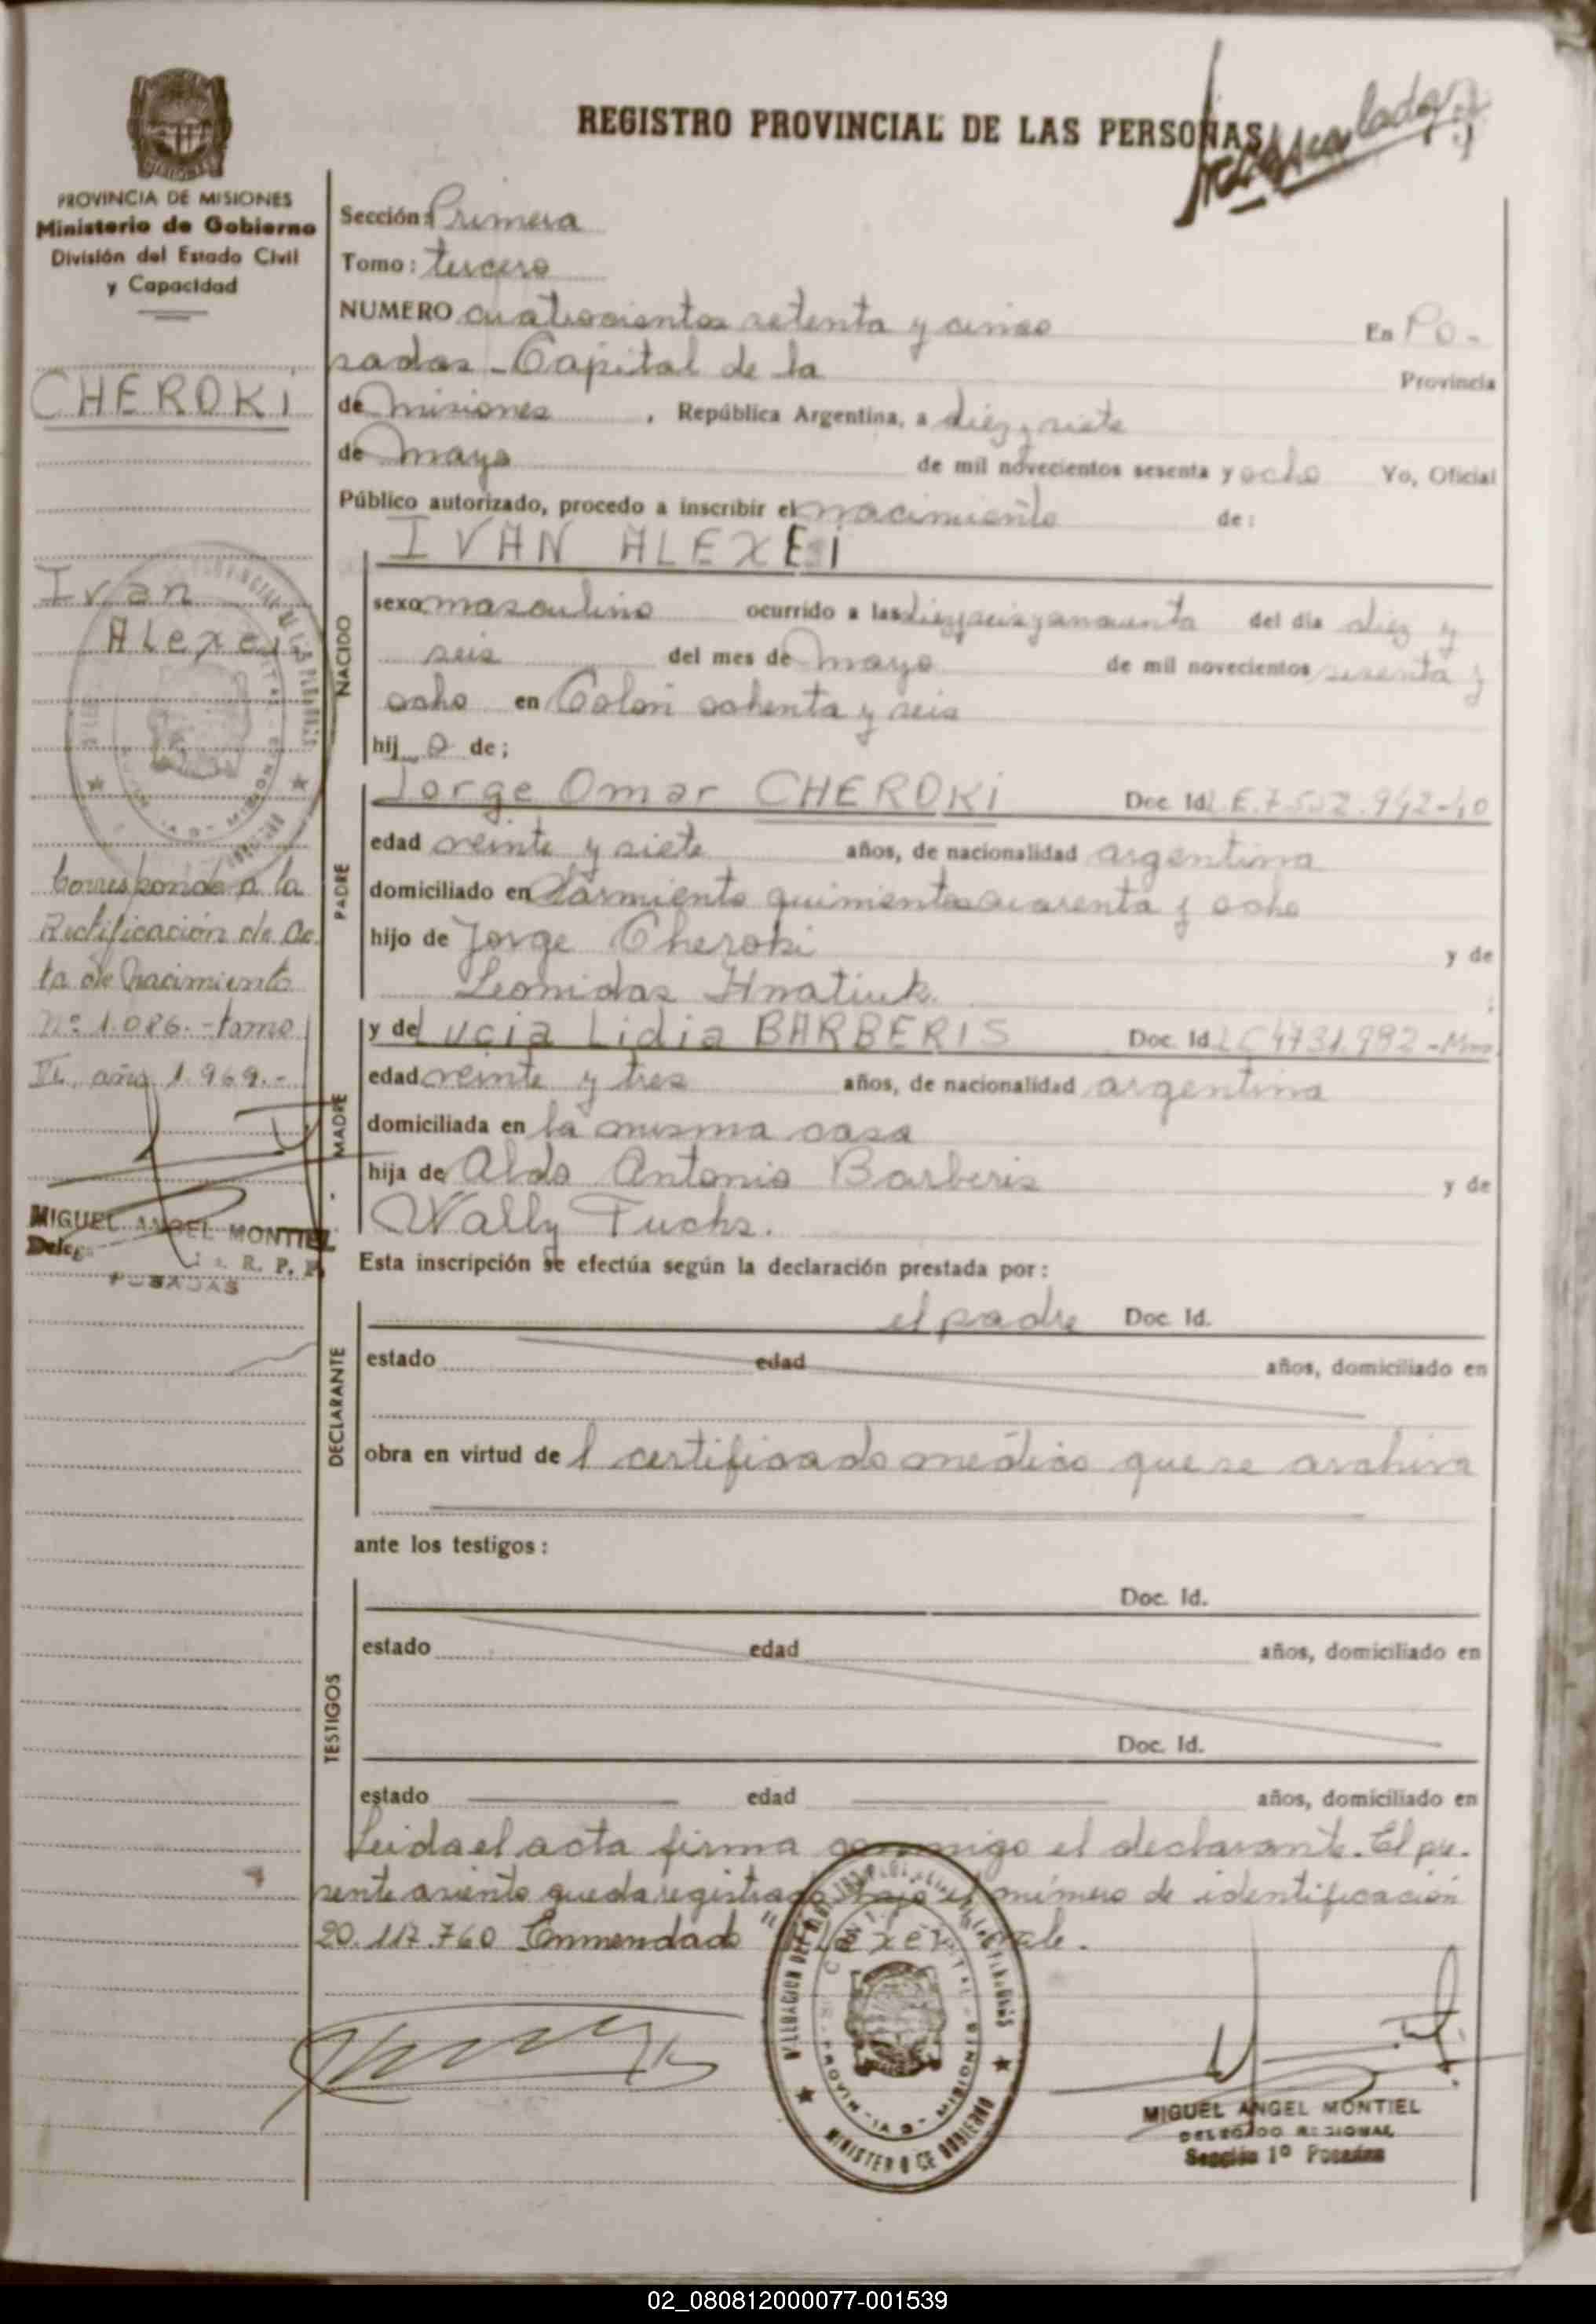 REGISTRO PROVINCIAL DE LAS PERSONAS
PROVINCIA DE MISIONES
Ministerio de Gobierno
División del Estado Civil
y Capacidad
CHEROKI
Ivan
Alexei
Corresponde a la
Rectificación de Ac
ta de Nacimiento
Nº 1.086.- tomo
VI, año 1.969.-
MIGUEL ANGEL MONTIEL
R. P. P.
POSADAS
Sección: Primera
Tomo: tercero
NUMERO cuatrocientos setenta y cinco En Po-
sadas - Capital de la Provincia
de misiones, República Argentina, a diez y siete
de mayo de mil novecientos sesenta y ocho Yo, Oficial
Público autorizado, procedo a inscribir el nacimiento de:
IVAN ALEXEI
NACIDO
sexo masculino ocurrido a las diez seis y cincuenta del día diez y
seis del mes de mayo de mil novecientos sesenta y
ocho en Colon ochenta y seis
hij o de;
PADRE
Jorge Omar CHEROKI Doc. Id. L.E. 7.502.942-40
edad veinte y siete años, de nacionalidad argentina
domiciliado en Sarmiento quinientos cuarenta y ocho
hijo de Jorge Cheroki y de
Leonidas Hnatiuk.
MADRE
y de Lucia Lidia BARBERIS Doc. Id. LC 4731.982 -
edad veinte y tres años, de nacionalidad argentina
domiciliada en la misma casa
hija de Aldo Antonio Barberis y de
Wally Fuchs.
Esta inscripción se efectúa según la declaración prestada por:
DECLARANTE
el padre Doc. Id.
estado edad años, domiciliado en
obra en virtud de l certificado médico que se archiva
ante los testigos:
TESTIGOS
Doc. Id.
estado edad años, domiciliado en
Doc. Id.
estado edad años, domiciliado en
Leida el acta firma conmigo el declarante. El pre-
sente asiento queda registrado bajo el número de identificación
20.117.760 Enmendado "Alexei" vale.
MINISTERIO DE GOBIERNO
MIGUEL ANGEL MONTIEL
DELEGADO REGIONAL
Sección 1º Posadas
02_080812000077-001539